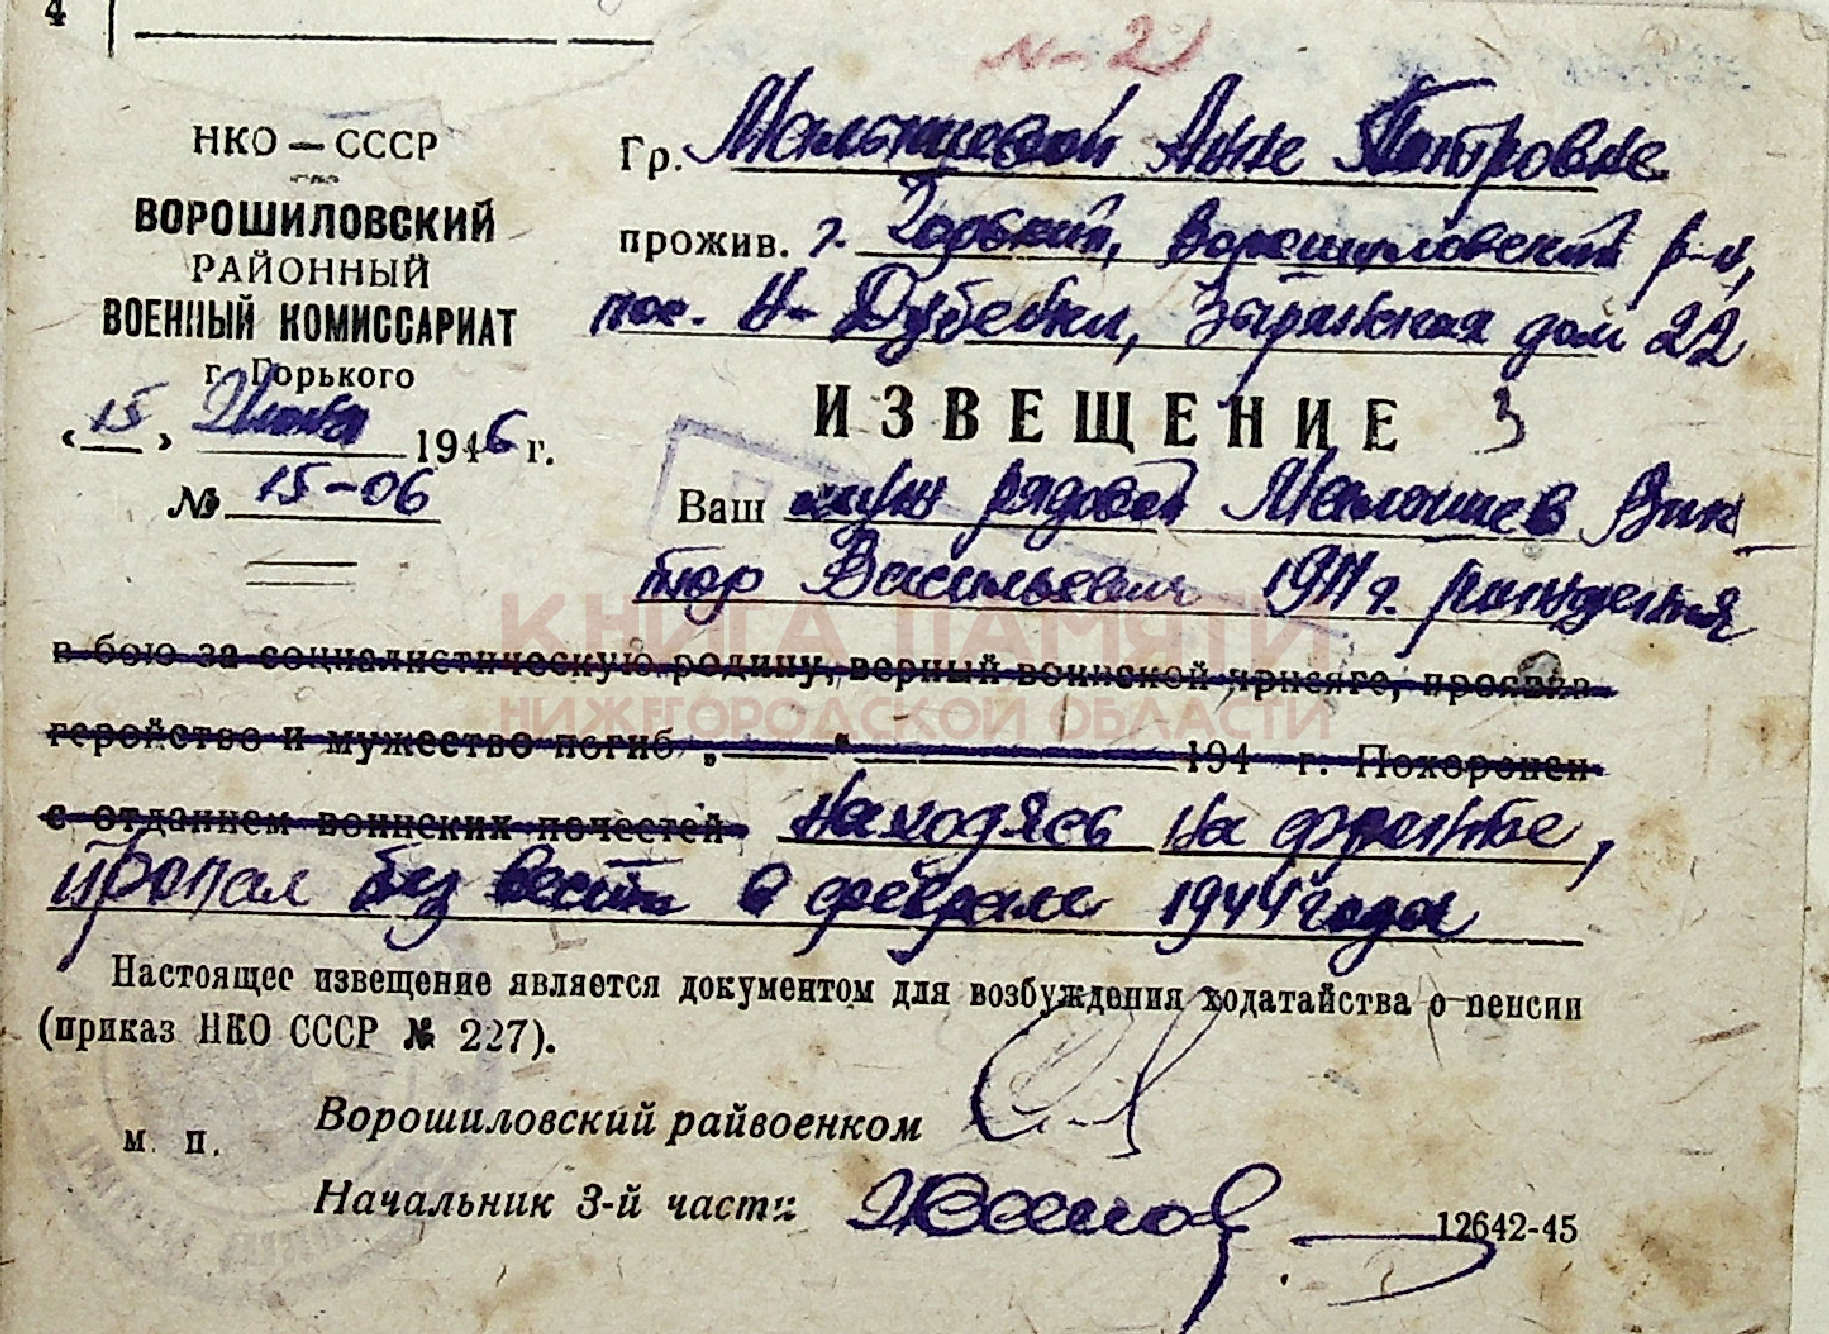 4
N-21
НКО — СССР
ВОРОШИЛОВСКИЙ
РАЙОННЫЙ
ВОЕННЫЙ КОМИССАРИАТ
г. Горького
« 15 » Июня 1946 г.
№ 15-06
Гр. Анне Петровне
прожив. г. Горький, Ворошиловский р-н,
пос. Н- Дубенки, дом 22
ИЗВЕЩЕНИЕ 3
Ваш муж рядовой Вик-
тор Васильевич 1911 г. рождения
в бою за социалистическую родину, верный воинской присяге, проявив
геройство и мужество погиб „ “ 194 г. Похоронен
с отданием воинских почестей Находясь на фронте,
пропал без вести в феврале 1944 года
Настоящее извещение является документом для возбуждения ходатайства о пенсии
(приказ НКО СССР № 227).
Ворошиловский райвоенком
м. п.
Начальник 3-й части
12642-45
КНИГА ПАМЯТИ
НИЖЕГОРОДСКОЙ ОБЛАСТИ